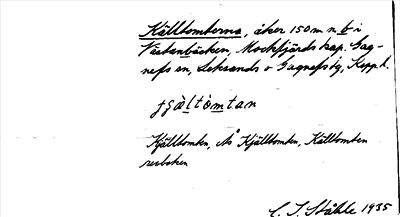 Källtomterna, åker 150 m n b i
Västanbäcken, Mockfjärds kap. Gag-
nefs sn, Leksands o Gagnefs tg, Kopp. l.
Kjälltomten, Ås Kjälltomten, Källtomten
C. I. Ståhle 1935